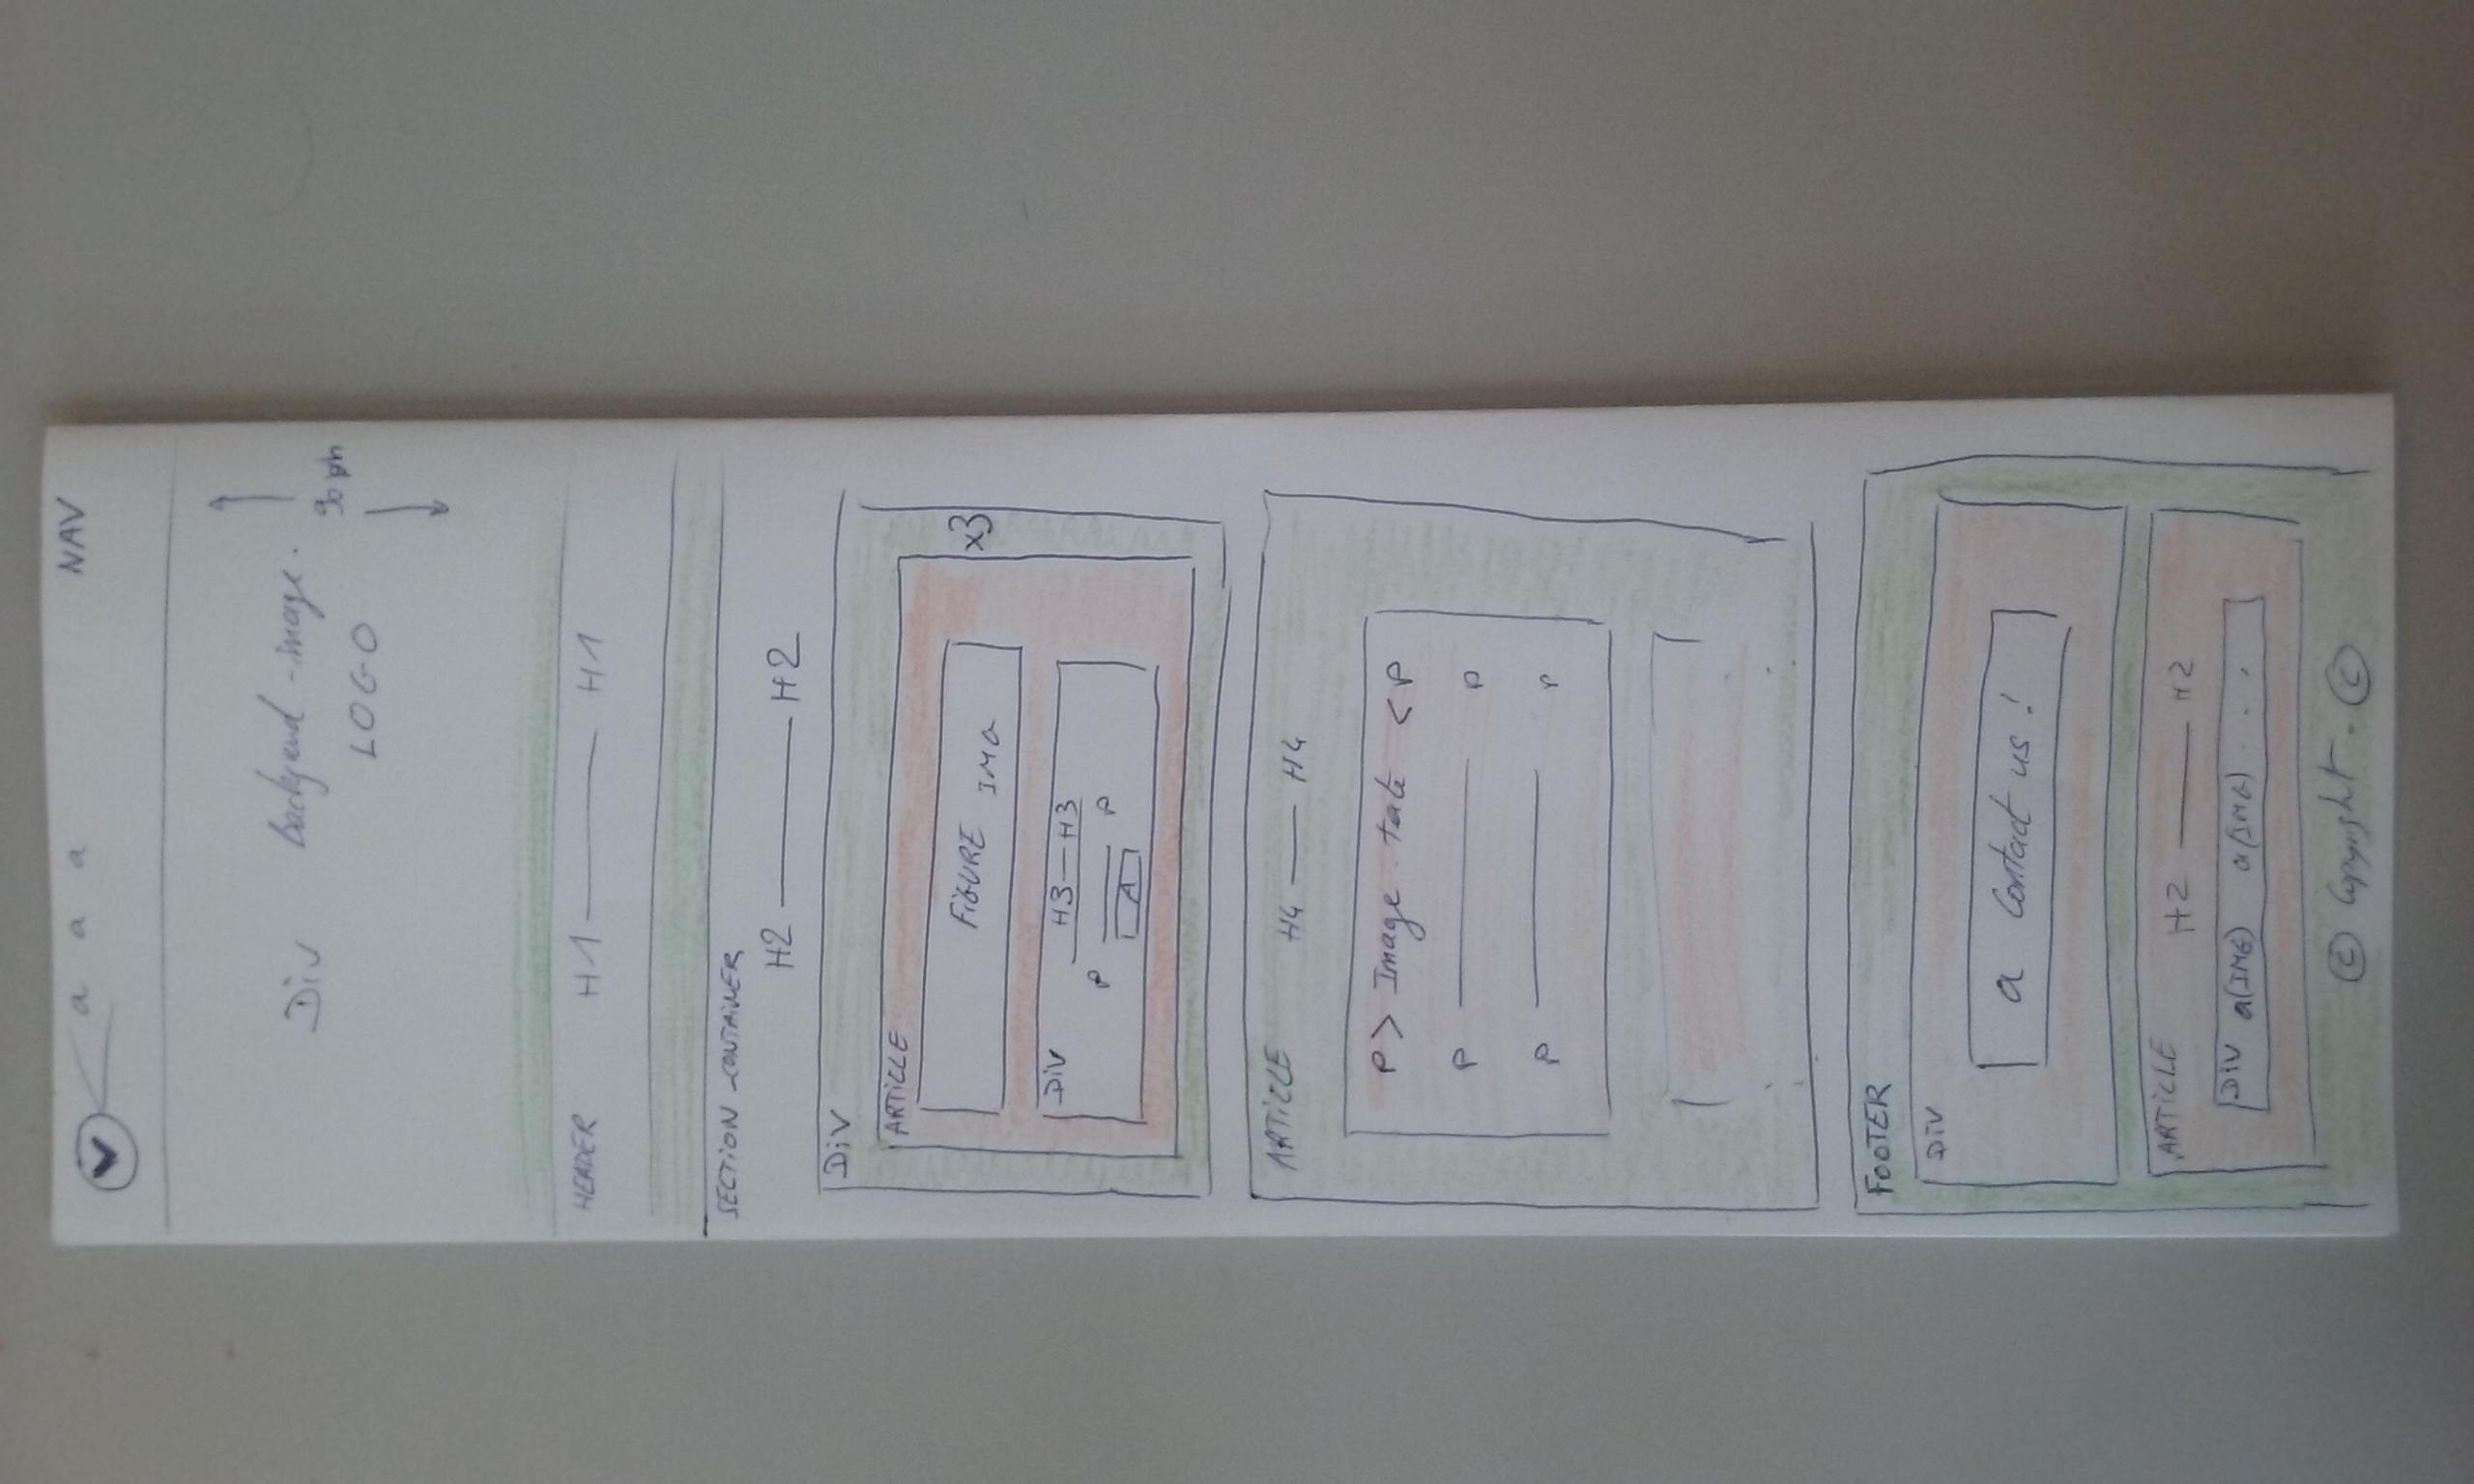 NAV
a a a
Div background-image.
LOGO
HEADER H1 H1
SECTION-CONTAINER
H2 H2
Div
ARTICLE
FIGURE IMG
x3
Div
H3 H3
P P
A
ARTICLE H4 H4
P> Image <P
P P
P P
FOOTER
Div
a Contact us!
ARTICLE H2 H2
Div a(IMG) a(IMG) . . .
© Copyright. ©